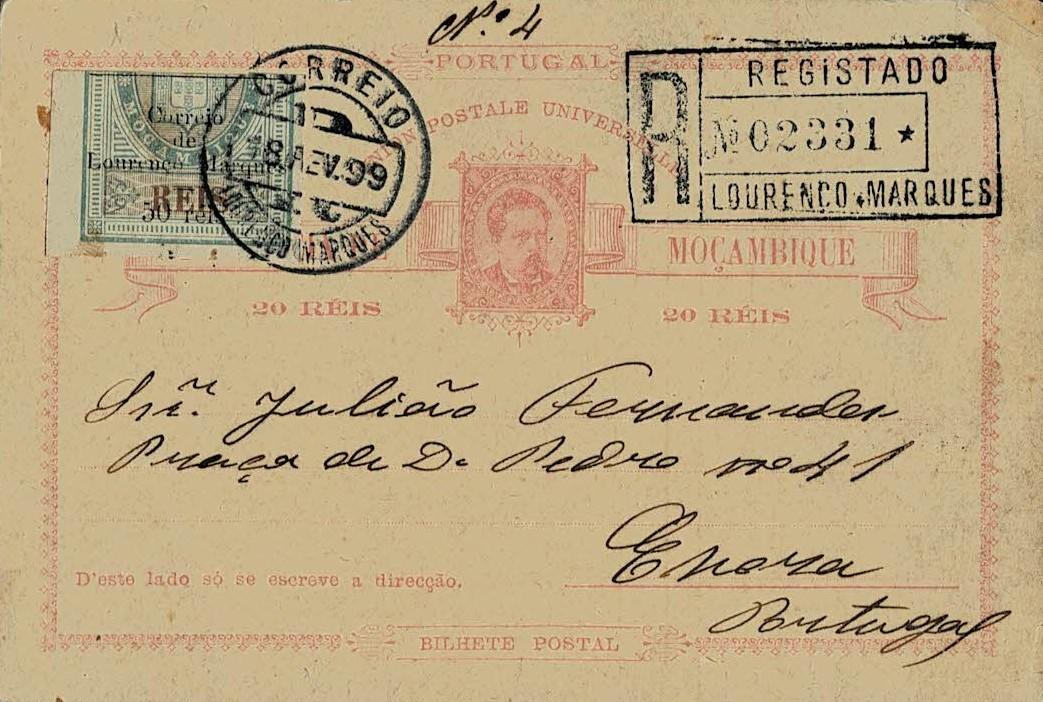 Nº 4
PORTUGAL
UNION POSTALE UNIVERSELLE
Correio
de
Lourenço Marques
REIS
50 reis
CORREIO
8.FEV.99
LOURENÇO MARQUES
R
REGISTADO
Nº 02331 *
LOURENCO MARQUES
MOÇAMBIQUE
20 RÉIS
20 RÉIS
Snr. Julião Fernandes
Praça de D. Pedro nº 41
Evora
Portugal
D'este lado só se escreve a direcção.
BILHETE POSTAL